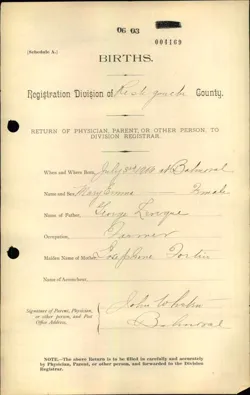 06 03
004169
(Schedule A.)
BIRTHS.
Registration Division of Restigouche County.
RETURN OF PHYSICIAN, PARENT, OR OTHER PERSON, TO
DIVISION REGISTRAR.
When and Where Born, July at Balmoral
Name and Sex, Mary Emma Female
Name of Father, George
Occupation, Farmer
Maiden Name of Mother, Josephine Fortin
Name of Accoucheur,
Signature of Parent, Physician,
or other person, and Post
Office Address,
John
Balmoral
NOTE.—The above Return is to be filled in carefully and accurately
by Physician, Parent, or other person, and forwarded to the Division
Registrar.